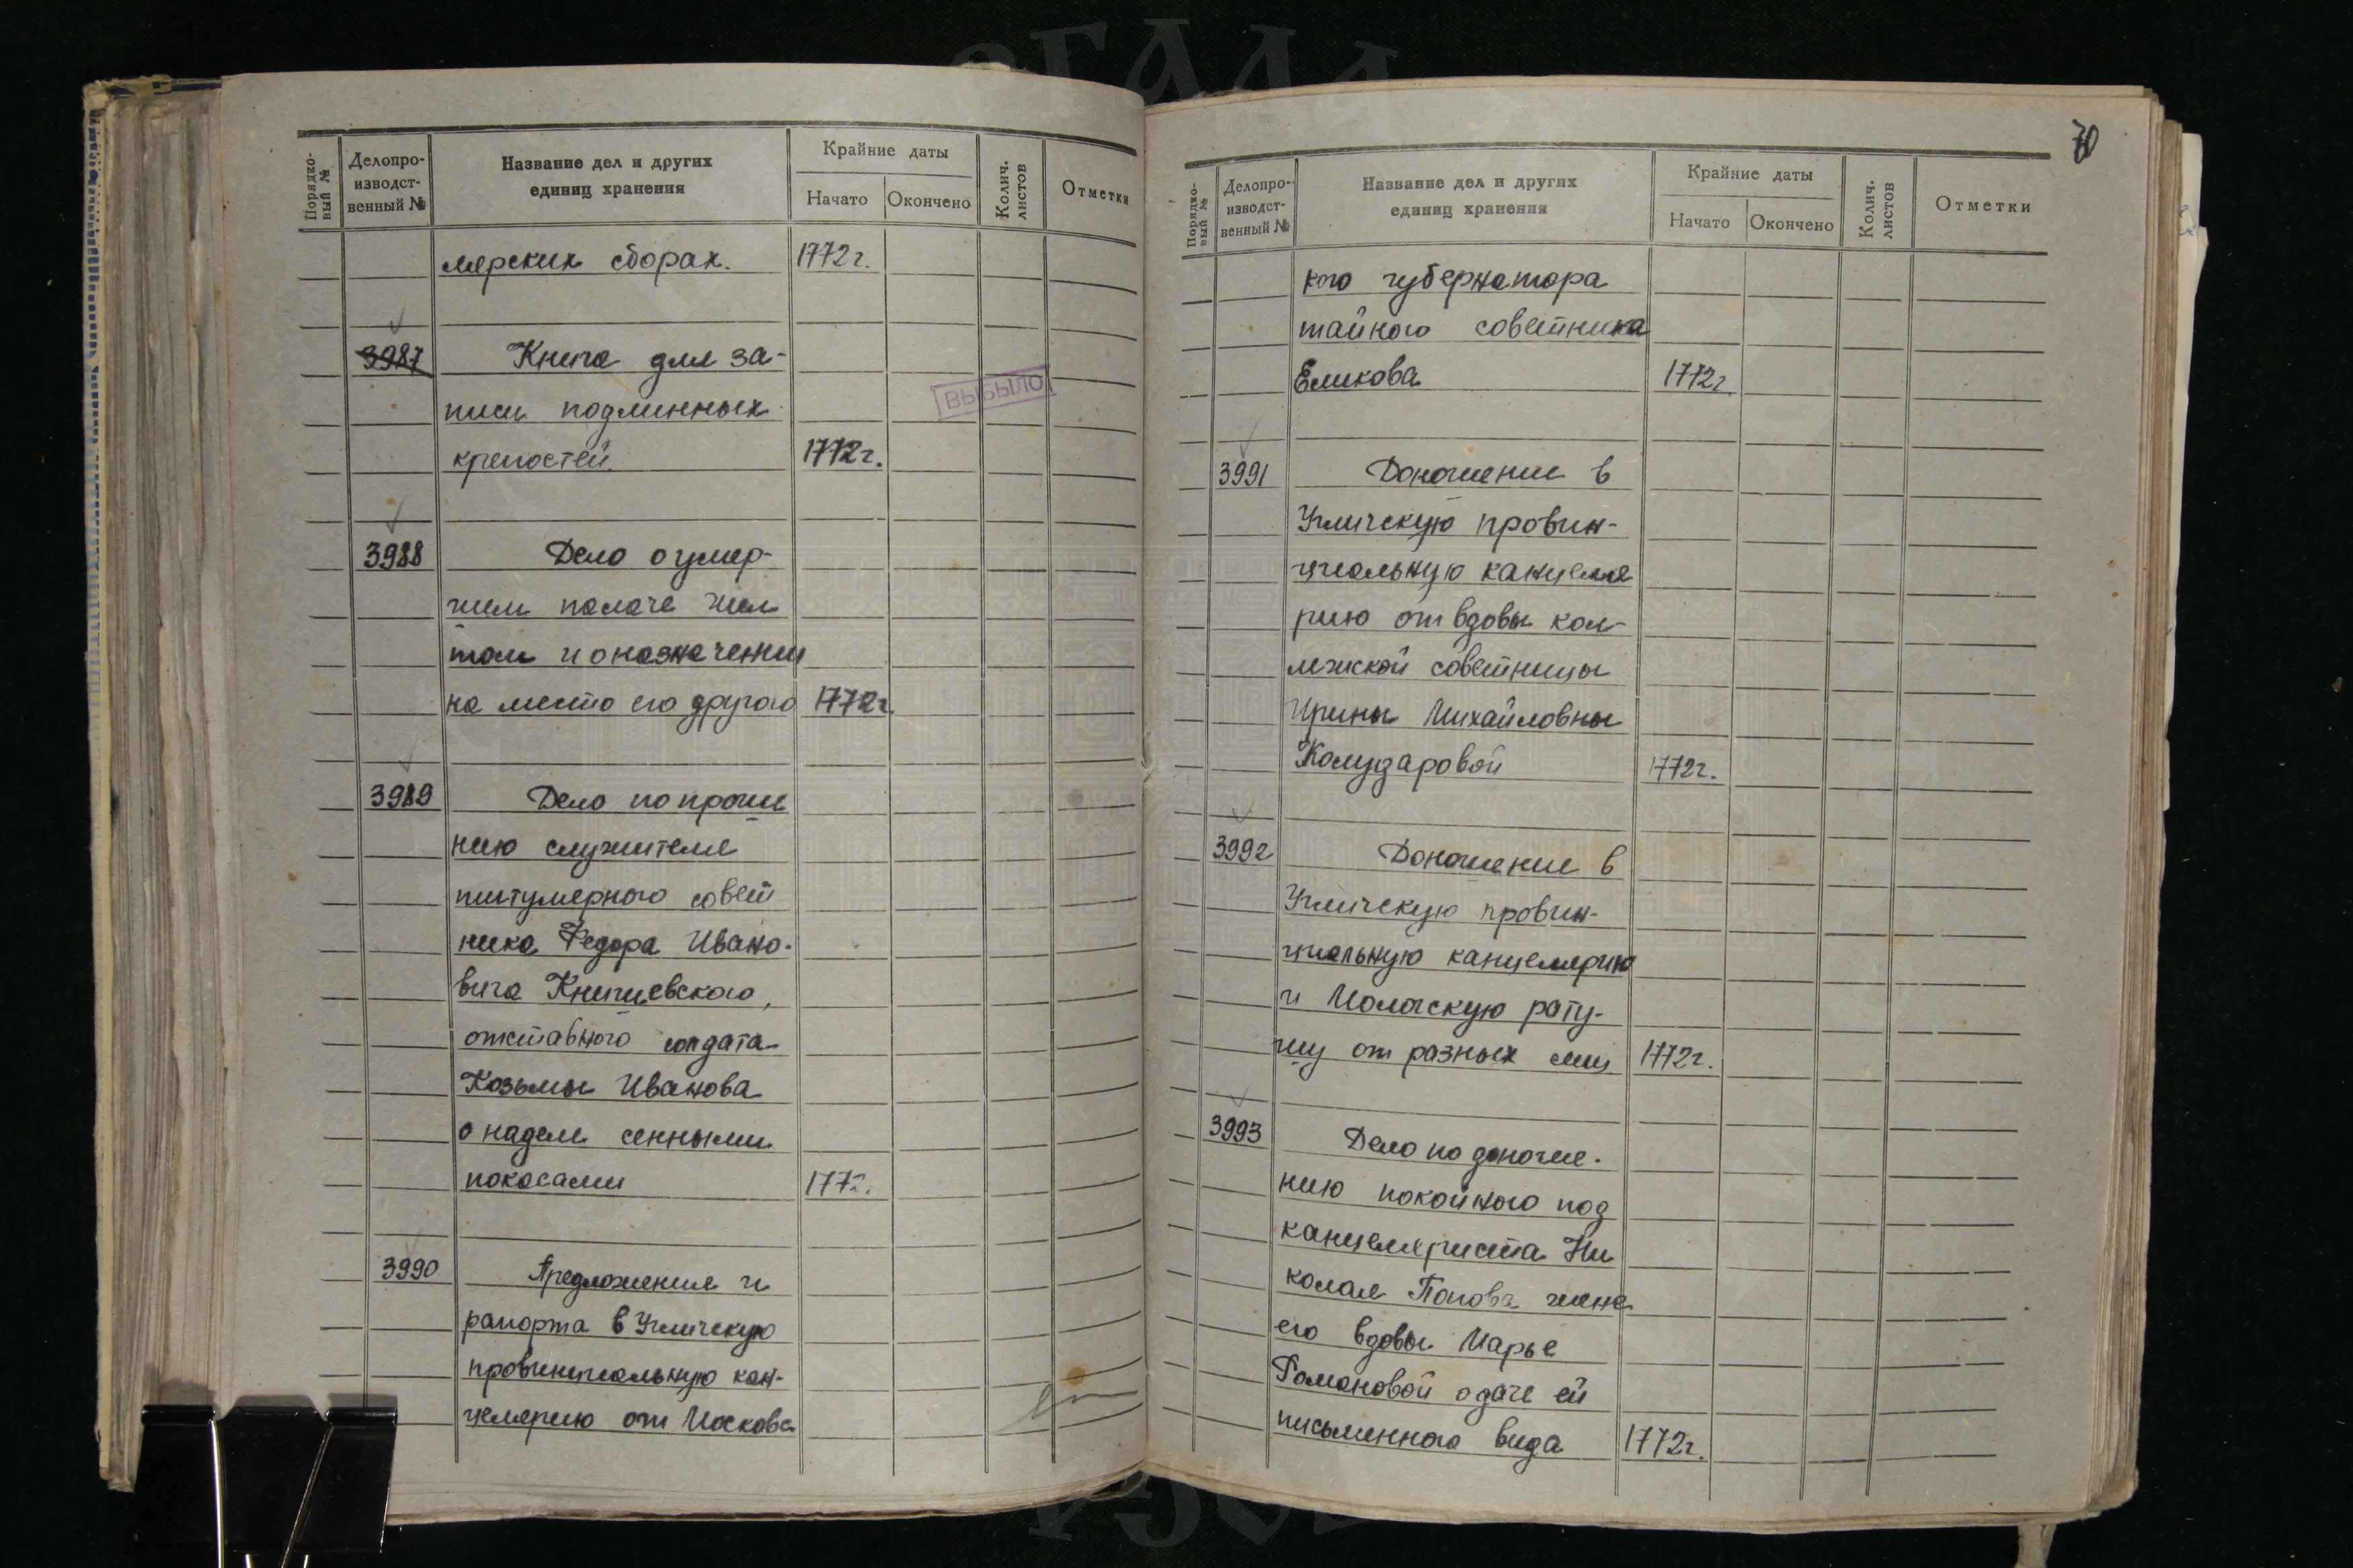 Порядко-
вый №
Делопро-
изводст-
венный №
Название дел и других
единиц хранения
Крайние даты
Начато
Окончено
Колич.
листов
Отметки
лярских сборах. 1772 г.
3987 Книга для за-
писи подлинных
крепостей 1772 г.
ВЫБЫЛО
3988 Дело о умер-
шем палаче
и о назначении
на место его другого 1772 г.
3989 Дело по проше
нию служителя
титулярного совет
ника Федора Ивано-
вича
отставного солдата
Козьмы Иванова
о наделе сенными
покосами 1772.
3990 Предложения и
рапорта в Угличскую
провинциальную кан-
целярию от Московс
70
Порядко-
вый №
Делопро-
изводст-
венный №
Название дел и других
единиц хранения
Крайние даты
Начато
Окончено
Колич.
листов
Отметки
кого губернатора
тайного советника
1772 г.
3991 Доношение в
Угличскую провин-
циальную канцеля
рию от вдовы кол-
лежской советницы
Ирины Михайловны
Колударовой 1772 г.
3992 Доношение в
Угличскую провин-
циальную канцелярию
и Мологскую рату-
шу от разных лиц 1772 г.
3993 Дело по доноше-
нию покойного под
канцеляриста Ни
колая Попова жене
его вдовы Марье
Романовой о даче ей
письменного вида 1772 г.